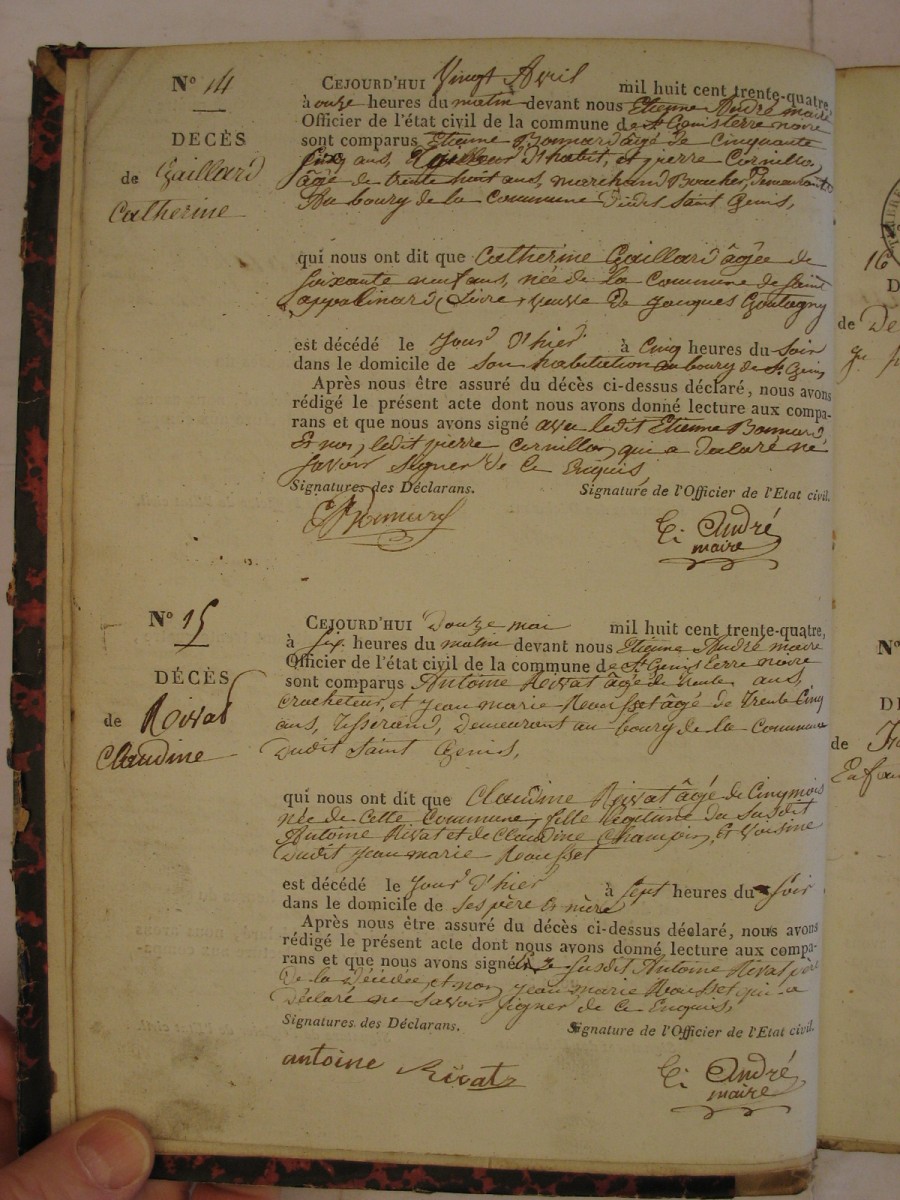 N° 14
DÉCÈS
de Gaillard
Catherine
CEJOURD'HUI Vingt Avril mil huit cent trente-quatre,
à onze heures du matin devant nous Etienne André maire
Officier de l'état civil de la commune de St Genisterre noire
sont comparus Etienne Bonnard âgé de Cinquante
six ans, Tailleur d'habit, et pierre Cornillon,
âgé de trente huit ans, marchand Boucher, Demeurants
Au bourg de la Commune dudit Saint Genis,
qui nous ont dit que Catherine Gaillard âgée de
soixante neuf ans, née de la Commune de Saint
appolinard, Loire, veuve de Jacques Goutagny
est décédé le Jour d'hier à Cinq heures du Soir
dans le domicile de son habitation au bourg de St Genis
Après nous être assuré du décès ci-dessus déclaré, nous avons
rédigé le présent acte dont nous avons donné lecture aux compa-
rans et que nous avons signé avec ledit Etienne Bonnard,
Et non, ledit pierre cornillon, qui a declaré ne
savoir signer de ce Enquis,
Signatures des Déclarans. Signature de l'Officier de l'Etat civil.
E. André
maire
N° 15
DÉCÈS
de Rivat
Claudine
CEJOURD'HUI Douze mai mil huit cent trente-quatre,
à six heures du matin devant nous Etienne André maire
Officier de l'état civil de la commune de St Genis terre noire
sont comparus Antoine Rivat âgé de trente ans,
Crocheteur, et Jean marie Rousset âgé de Trente Cinq
ans, Tisserand, Demeurant au bourg de la Commune
Dudit Saint Genis,
qui nous ont dit que Claudine Rivat âgé de Cinq mois
née de Cette Commune, fille légitime du Susdit
Antoine Rivat et de Claudine et Voisine
Dudit Jean marie Rousset
est décédé le Jour d'hier à Sept heures du Soir
dans le domicile de ses père Et mère
Après nous être assuré du décès ci-dessus déclaré, nous avons
rédigé le présent acte dont nous avons donné lecture aux compa-
rans et que nous avons signé susdit Antoine Rivat père
De la Décédée, et non Jean marie Rousset qui a
Déclaré ne Savoir signer de ce Enquis,
Signatures des Déclarans. Signature de l'Officier de l'Etat civil.
antoine Rivat
E. André
maire
16
D
de De
N°
DÉ
de